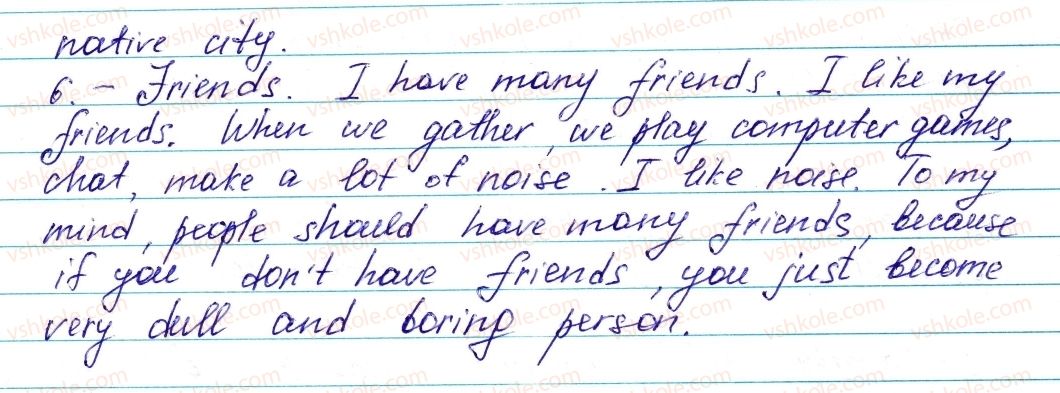 native city.
6. – Friends. I have many friends. I like my
friends. When we gather, we play computer games,
chat, make a lot of noise. I like noise. To my
mind, people should have many friends, because
if you don't have friends, you just become
very dull and boring person.